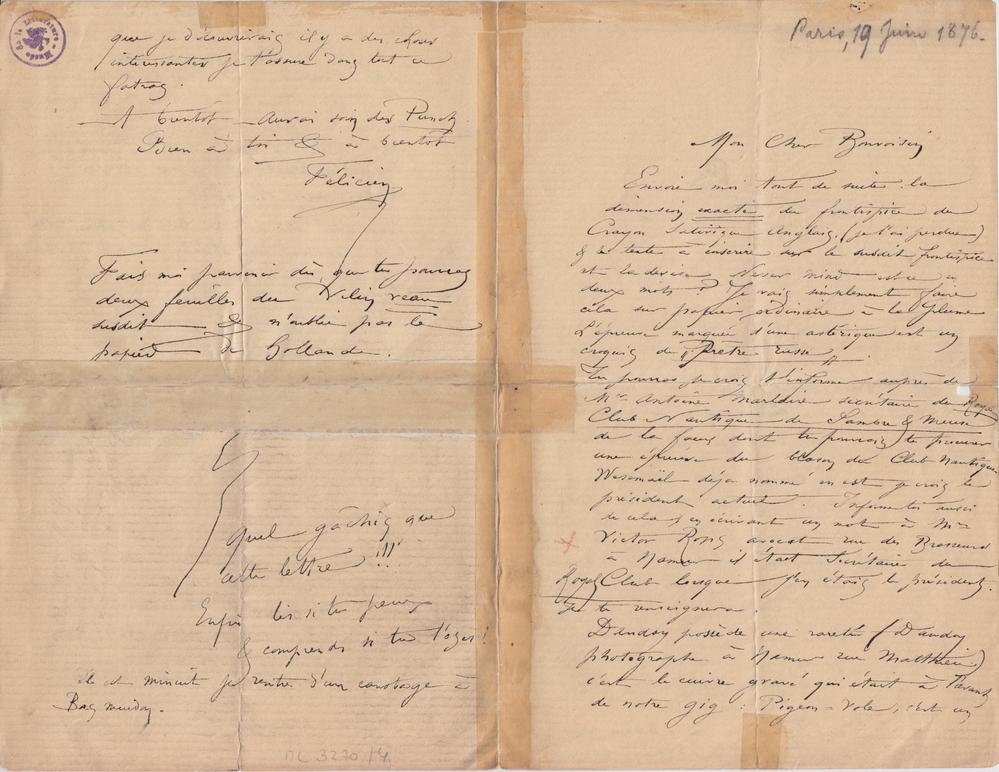 Paris, 19 Juin 1876.
Mon Cher Bonvoisin
Envoie moi tout de suite la
dimension exacte du frontispice du
Crayon Satirique Anglais. (je l'ai perdue)
& le texte à inscrire sur le susdit frontispice
et la devise Never mind est ce en
deux mots ? Je vais simplement faire
cela sur papier ordinaire à la plume
L'épreuve marquée d'une astérique est un
croquis de Prêtre russe
Tu pourras je crois t'informer auprès de
Mr Antoine secrétaire du Royal
Club Nautique de Sambre & Meuse
de la façon dont tu pourrais te procurer
une épreuve du blason du Club Nautique
Wasmaël déjà nommé en est je crois le
président actuel. Informe toi aussi
de cela en écrivant un mot à Mr
Victor Rops avocat rue des Brasseurs
à Namur il était Secrétaire du
Royal Club lorsque j'en étais le président.
Il te renseignera.
Dandoy possède une rareté (Dandoy
photographe à Namur rue Mathieu)
c'est le cuivre gravé qui était à l'avant
de notre gig : Pigeon-vole, c'est un
que je découvrirais il y a des choses
intéressantes je t'assure dans tout ce
fatras.
A bientôt aurai soin des Punch
Bien à toi & à bientôt
Félicien
Fais moi parvenir dès que tu pourras
deux feuilles du Vélin veau
susdit & n'oublie pas le
papier de Hollande.
Quel gâchis que
cette lettre !!!
Enfin lis si tu peux
& comprends si tu l'oses !
il est minuit je rentre d'un canotage à
Bas meudon.
ML 3270/4
Musée de la Littérature